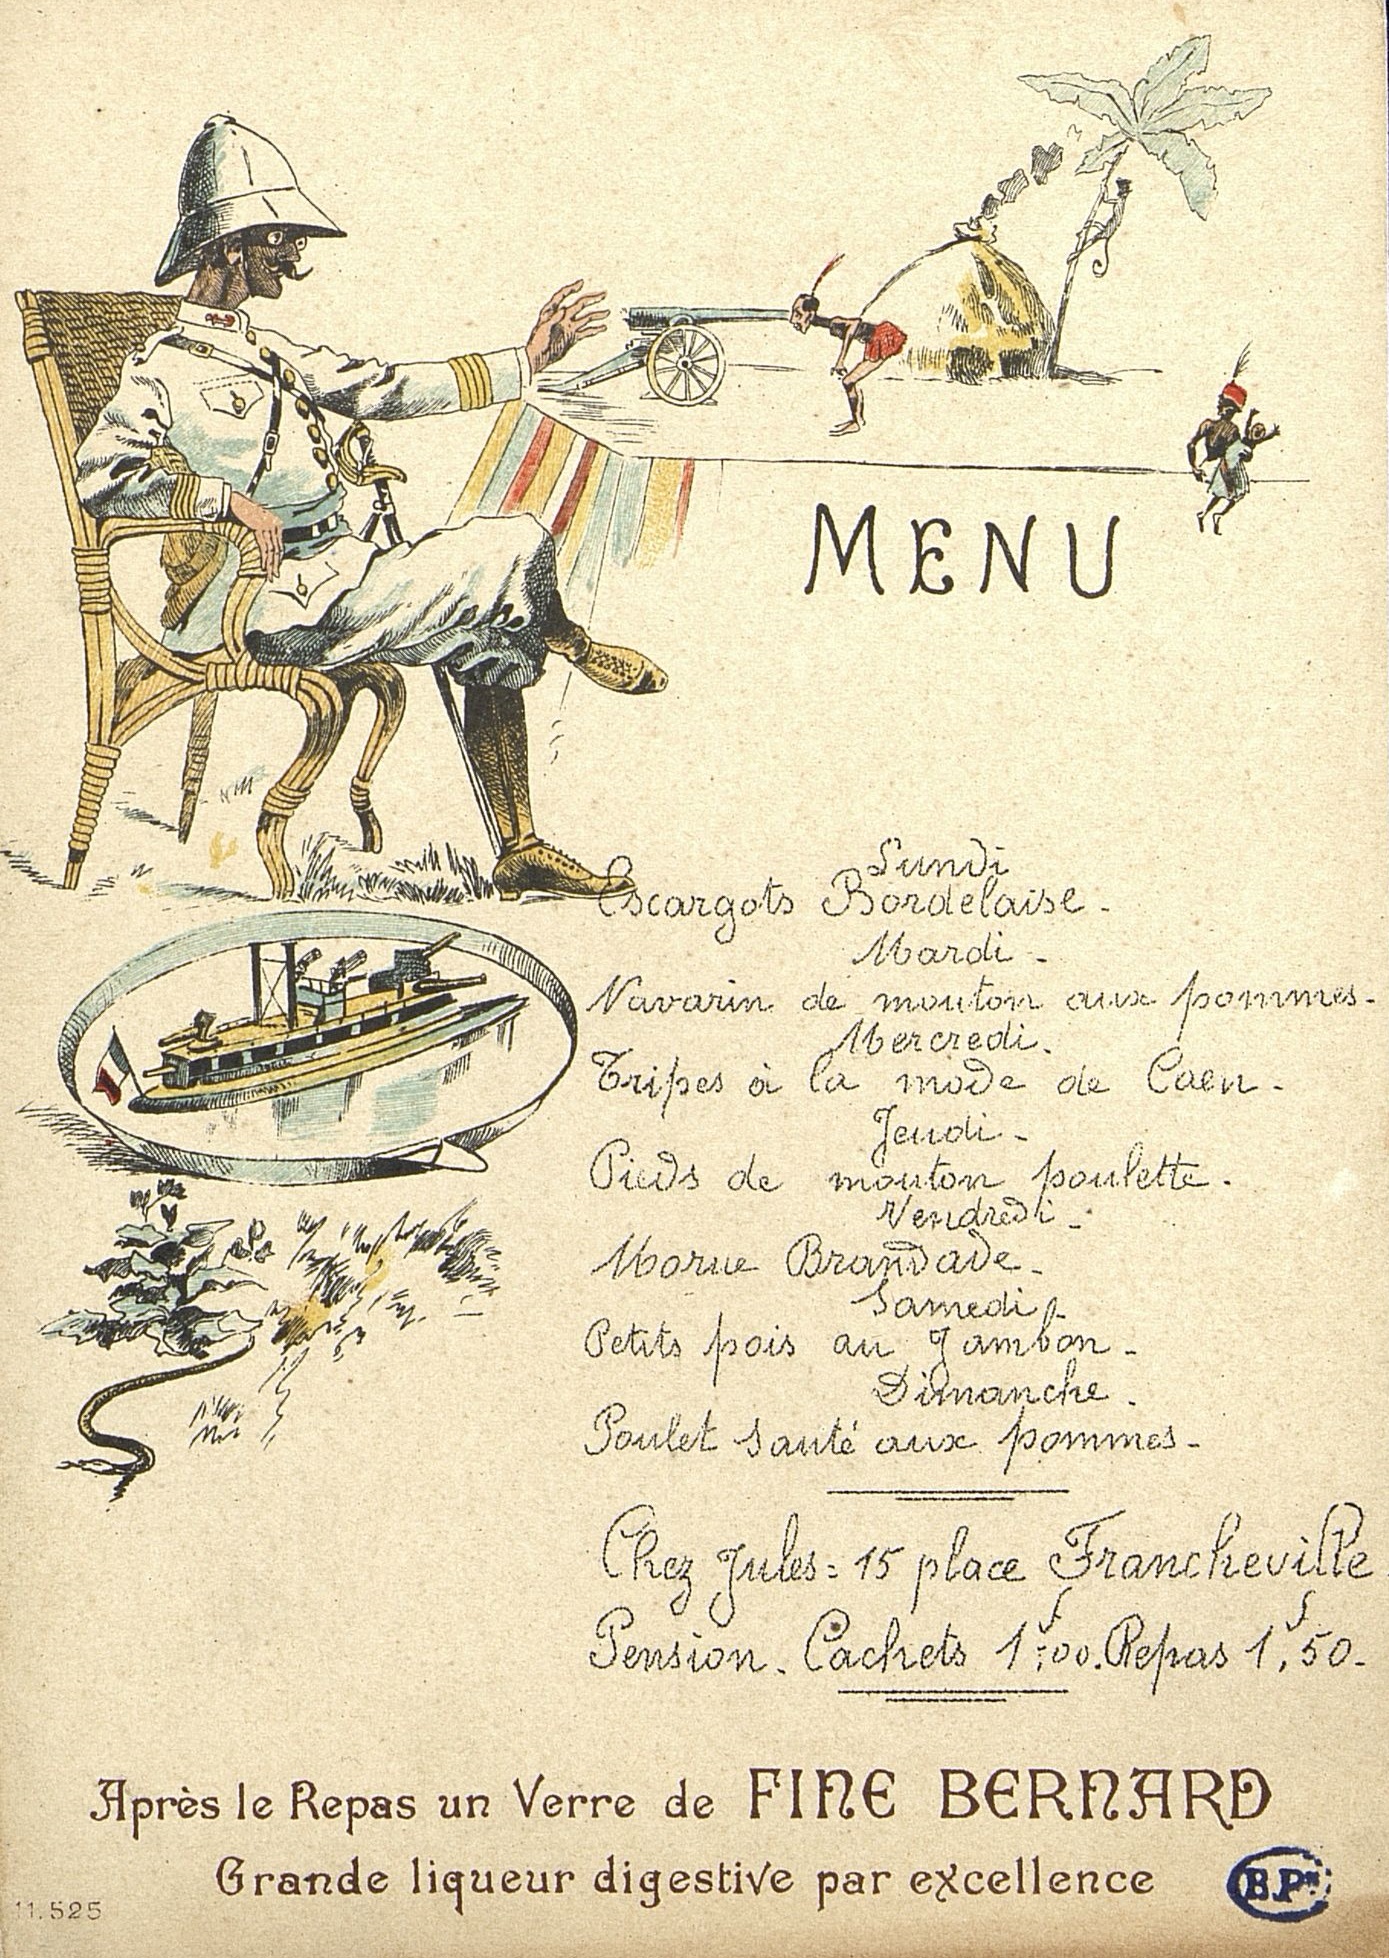 MENU
Lundi
Escargots Bordelaise -
Mardi -
Navarin de mouton aux pommes -
Mercredi.
Tripes à la mode de Caen -
Jeudi -
Pieds de mouton poulette.
Vendredi -
Morue Brandade -
Samedi -
Petits pois au Jambon -
Dimanche.
Poulet sauté aux pommes -
Chez Jules = 15 place Francheville.
Pension. Cachets 1f,00. Repas 1f,50.
Après le Repas un Verre de FINE BERNARD
Grande liqueur digestive par excellence
11.525